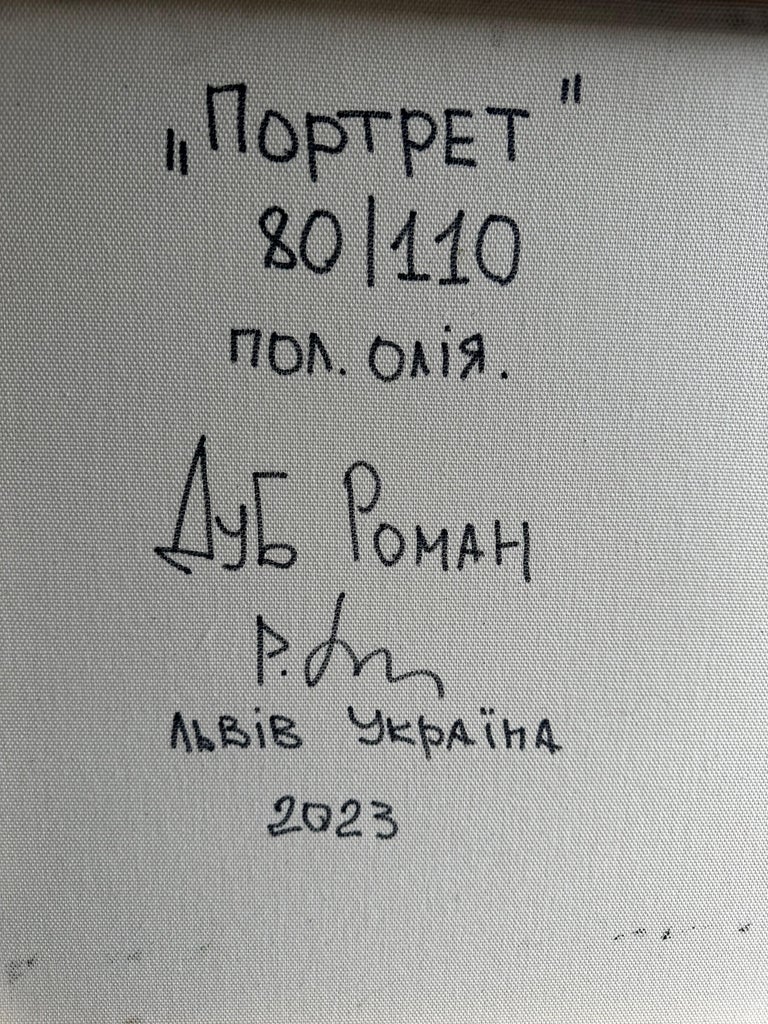 „Портрет"
80|110
пол. олія.
Дуб Роман
Р.
Львів Україна
2023